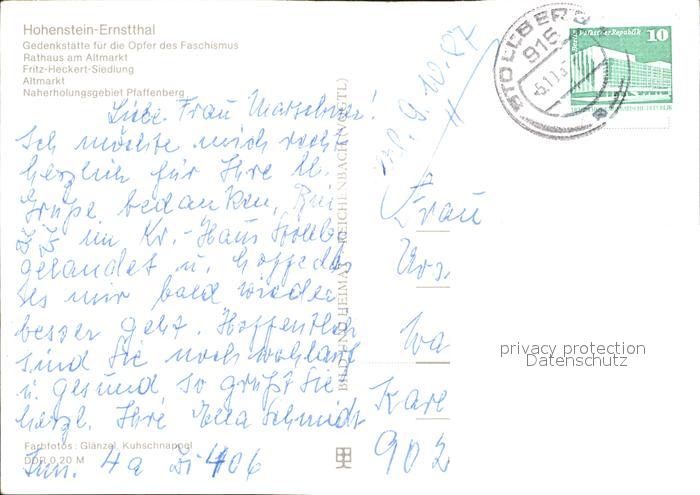 Hohenstein-Ernstthal
Gedenkstätte für die Opfer des Faschismus
Rathaus am Altmarkt
Fritz-Heckert-Siedlung
Altmarkt
Naherholungsgebiet Pfaffenberg
Liebe Frau Marschner!
Ich möchte mich recht
herzlich für Ihre lb.
Grüße bedanken, Bin
z. Z. im Kr.-Haus Stollbg
gelandet u. hoffe das
es mir bald wieder
besser geht. Hoffentlich
sind Sie noch wohlauf
u. gesund, so grüßt Sie
herzl. Ihre Ella Schmidt
4a Zi 406
Farbfotos: Glänzel, Kuhschnappel
DDR 0,20 M
BILD UND HEIMAT REICHENBACH (VOGTL)
9.10.87
STOLLBERG
915
10
Frau
Urs
Wa
Karl
902
privacy protection
Datenschutz